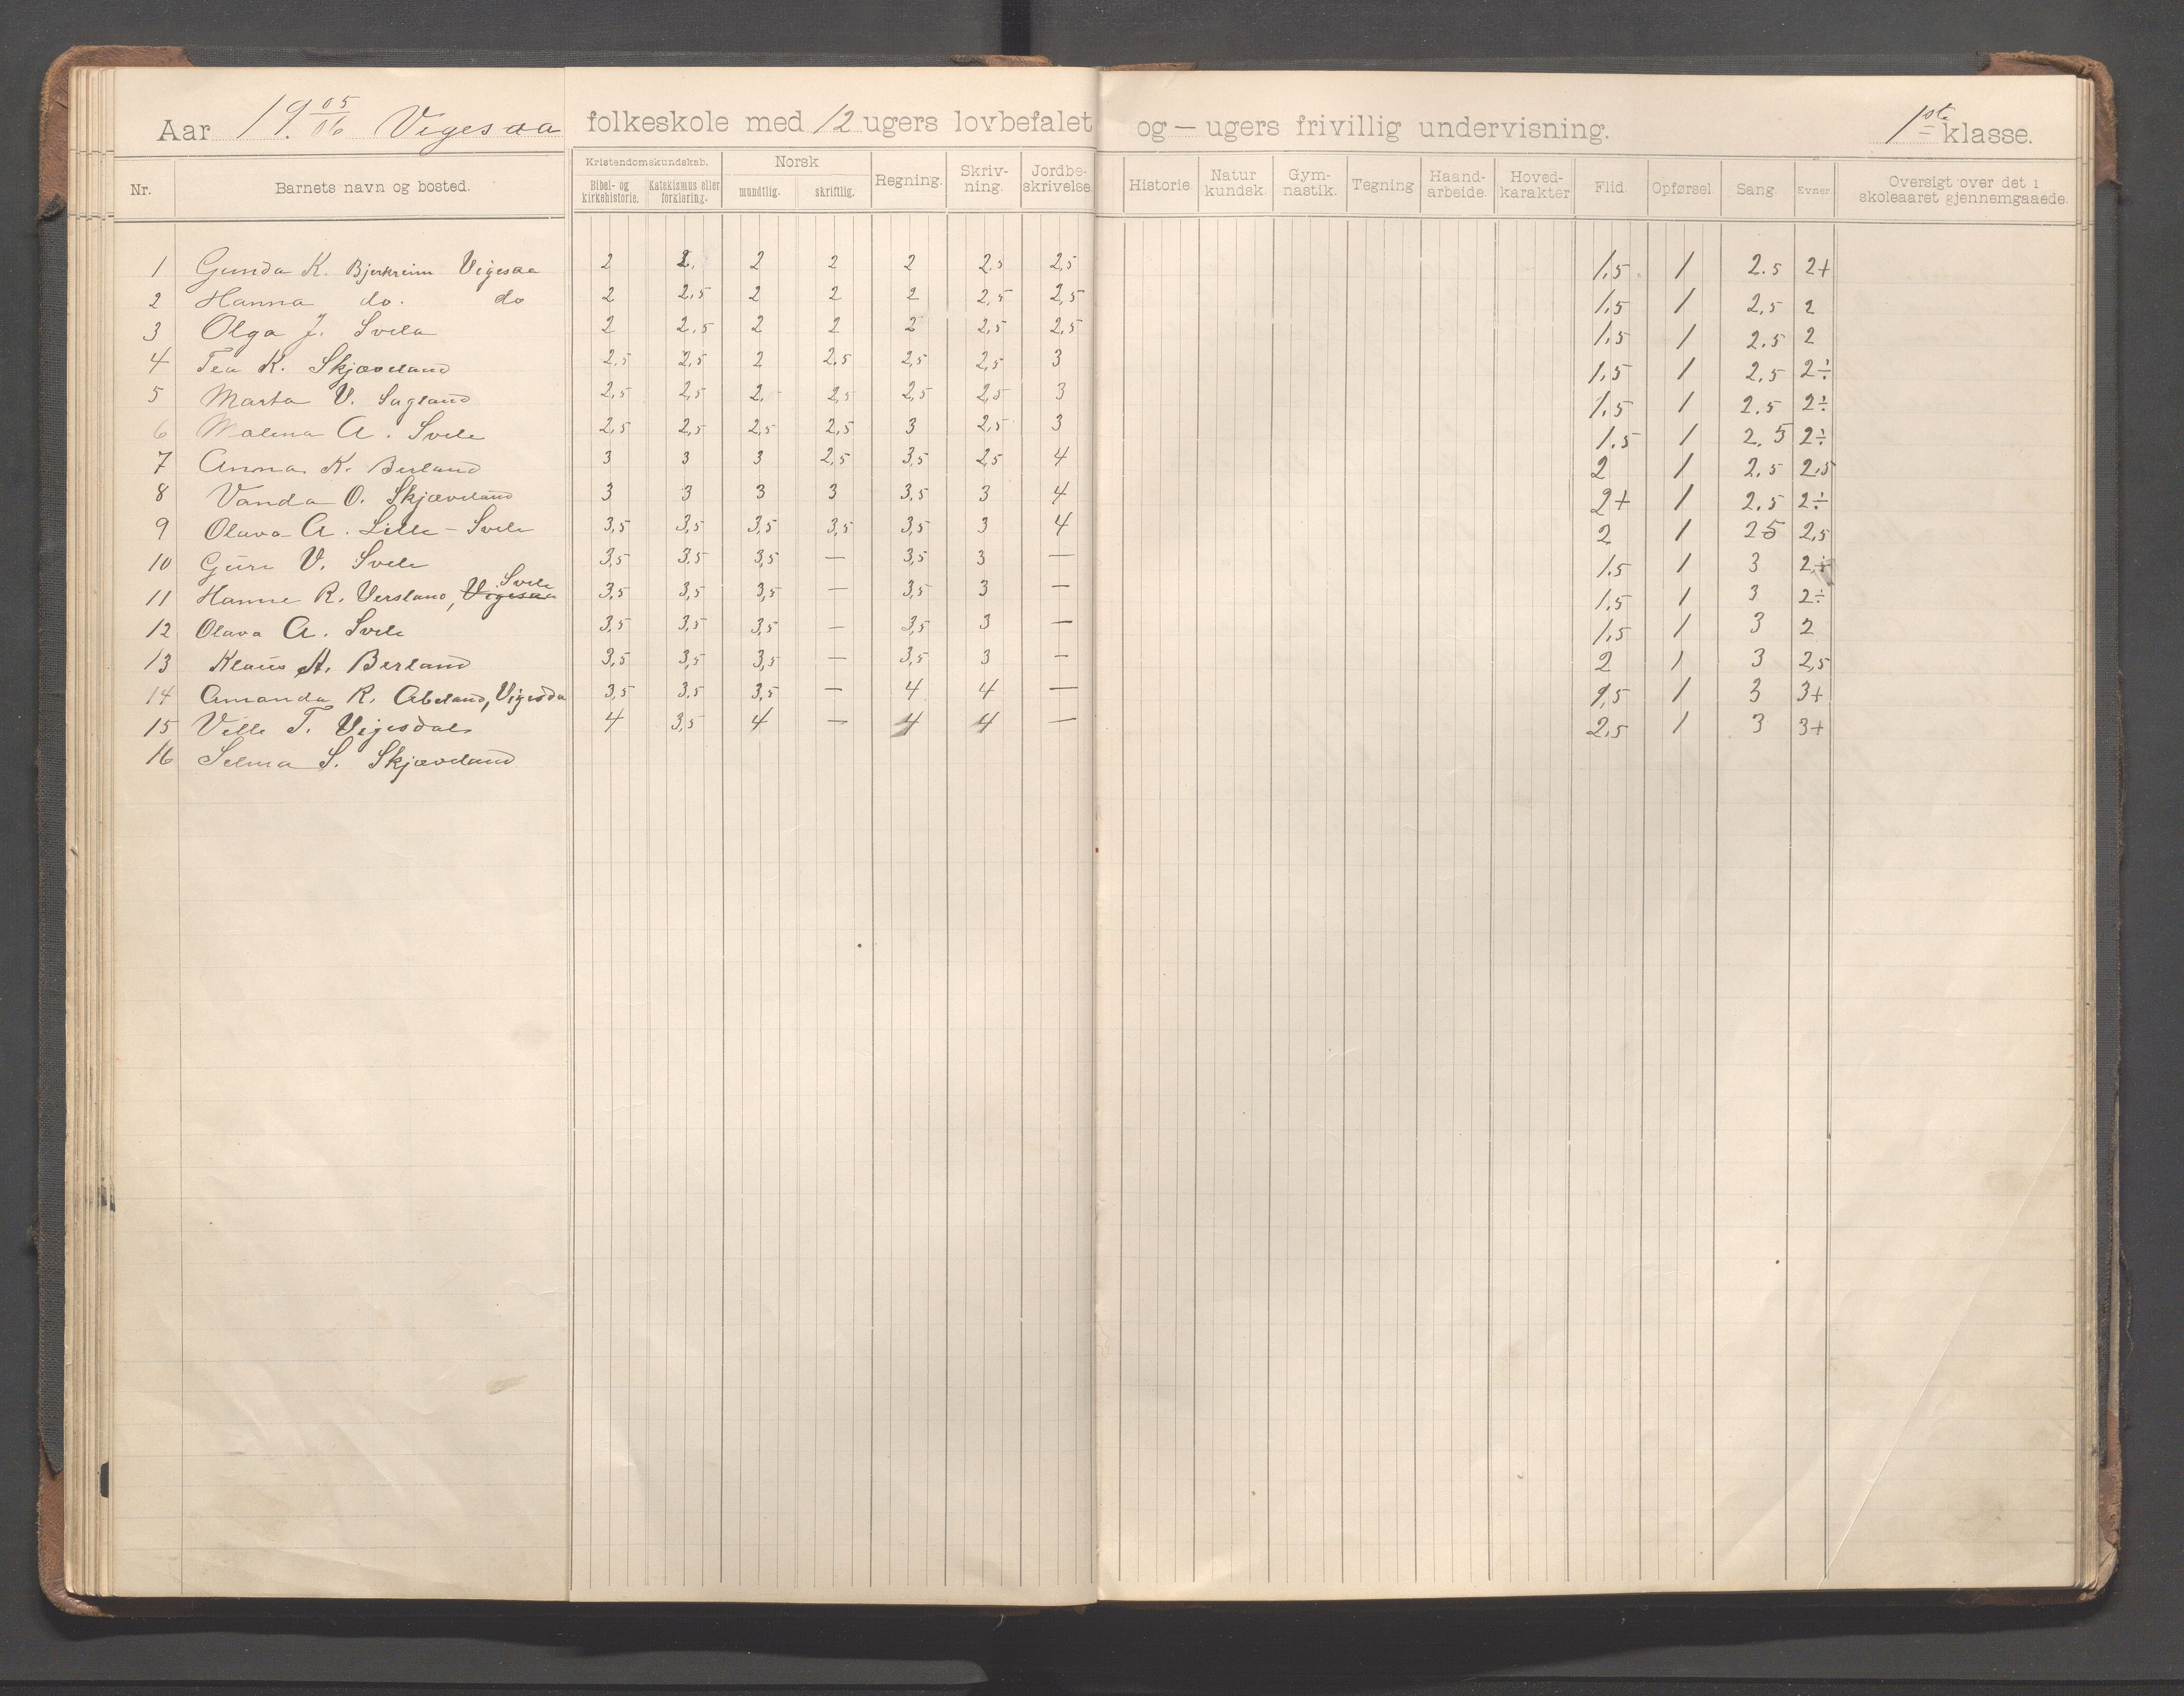 Aar 19 05/06 Vigesaa folkeskole med 12 ugers lovbefalet og — ugers frivillig undervisning. 1ste klasse.
Nr. Barnets navn og bosted. Kristendomskundskab. Bibel- og kirkehistorie. Katekismus eller forklaring. Norsk mundtlig. skriftlig. Regning. Skriv-ning. Jordbe-skrivelse. Historie. Natur kundsk. Gym-nastik. Tegning Haand-arbeide. Hoved-karakter Flid. Opførsel. Sang. Evner. Oversigt over det i skoleaaret gjennemgaaede.
1 Gunda K. Bjerkreim Vigesaa 2 2. 2 2 2 2.5 2,5 1,5 1 2.5 2+
2 Hanna do. do 2 2,5 2 2 2 2,5 2,5 1,5 1 2,5 2
3 Olga J. Svela 2 2,5 2 2 2 2,5 2,5 1,5 1 2.5 2
4 Tea K. Skjæveland 2,5 2,5 2 2,5 2,5 2,5 3 1,5 1 2,5 2÷
5 Marta V. Sagland 2,5 2,5 2. 2,5 2,5 2,5 3 1,5 1 2.5 2÷
6 Malena A. Svele 2,5 2,5 2,5 2,5 3 2,5 3 1.5 1 2.5 2÷
7 Anna K. Berland 3 3 3 2,5 3,5 2,5 4 2 1 2.5 2,5
8 Vanda O. Skjæveland 3 3 3 3 3,5 3 4 2+ 1 2.5 2÷
9 Olava A. Lille-Svele 3,5 3,5 3,5 3,5 3,5 3 4 2 1 25 2,5
10 Guri V. Svele 3,5 3,5 3,5 — 3,5 3 — 1.5 1 3 2,5
11 Hanne R. Versland, Vigesaa Svele 3,5 3,5 3,5 — 3,5 3 — 1,5 1 3 2÷
12 Olava A. Svele 3,5 3,5 3,5 — 3,5 3 — 1,5 1 3 2
13 Klaus A. Berland 3,5 3,5 3,5 — 3,5 3 — 2 1 3 2,5
14 Amanda R. Abeland, Vigesda 3,5 3,5 3,5 — 4 4 — 1,5 1 3 3+
15 Ville T. Vigesdal 4 3,5 4 — 4 4 — 2,5 1 3 3+
16 Selma S. Skjæveland